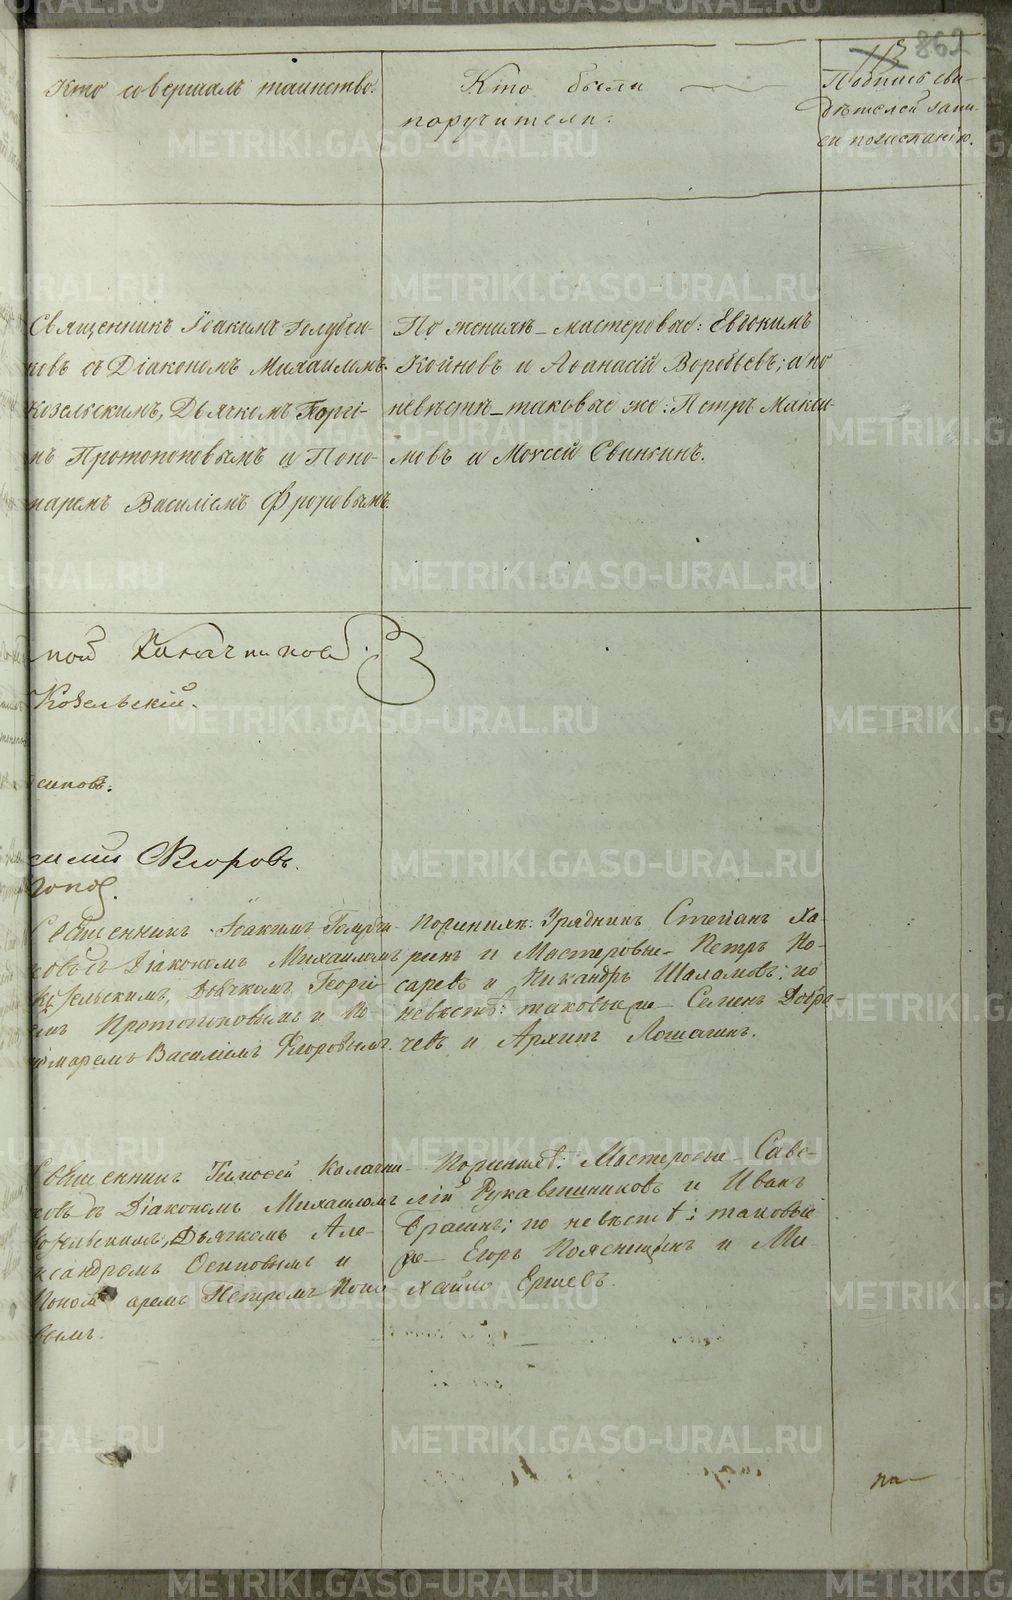 113 862
Кто совершалъ таинство.
Кто были
поручители.
Подпись сви-
дѣтелей запи-
си по желанію.
Священникъ Іоакимъ Голубчи-
ковъ съ Діакономъ Михаиломъ
Козельскимъ, Дьячкомъ Георгі-
мъ Протопоповымъ и Поно-
маремъ Василіемъ Флоровымъ.
По женихѣ – мастеровые: Евдокимъ
Койновъ и Аѳанасій Воробьевъ; а по
невѣстѣ – таковые же: Петръ Макси-
мовъ и Моѵсей Свинкинъ.
Козельскій.
сиповъ.
силій Флоровъ.
Попов.
Священникъ Іоакимъ Голубчи-
ковъ съ Діакономъ Михаиломъ
Козельскимъ, Дьячкомъ Георгі-
емъ Протопоповымъ и По-
номаремъ Василіемъ Флоровымъ.
По женихѣ: Урядникъ Степанъ Ха-
ринъ и Мастеровые – Петръ Но-
саревъ и Никандръ Шаламовъ; по
невѣстѣ: таковые же – Семенъ Добра-
чевъ и Архипъ Лошагинъ.
Священникъ Тимоѳей Калачни-
ковъ съ Діакономъ Михаиломъ
Козельскимъ, Дьячкомъ Але-
ксандромъ Осиповымъ и
Пономаремъ Петромъ Попо
вымъ.
По женихѣ: Мастеровые – Саве-
лій Рукавишниковъ и Иванъ
по невѣстѣ: таковые
же – Егоръ и Ми
хайло Ершевъ.
па–
METRIKI.GASO-URAL.RU